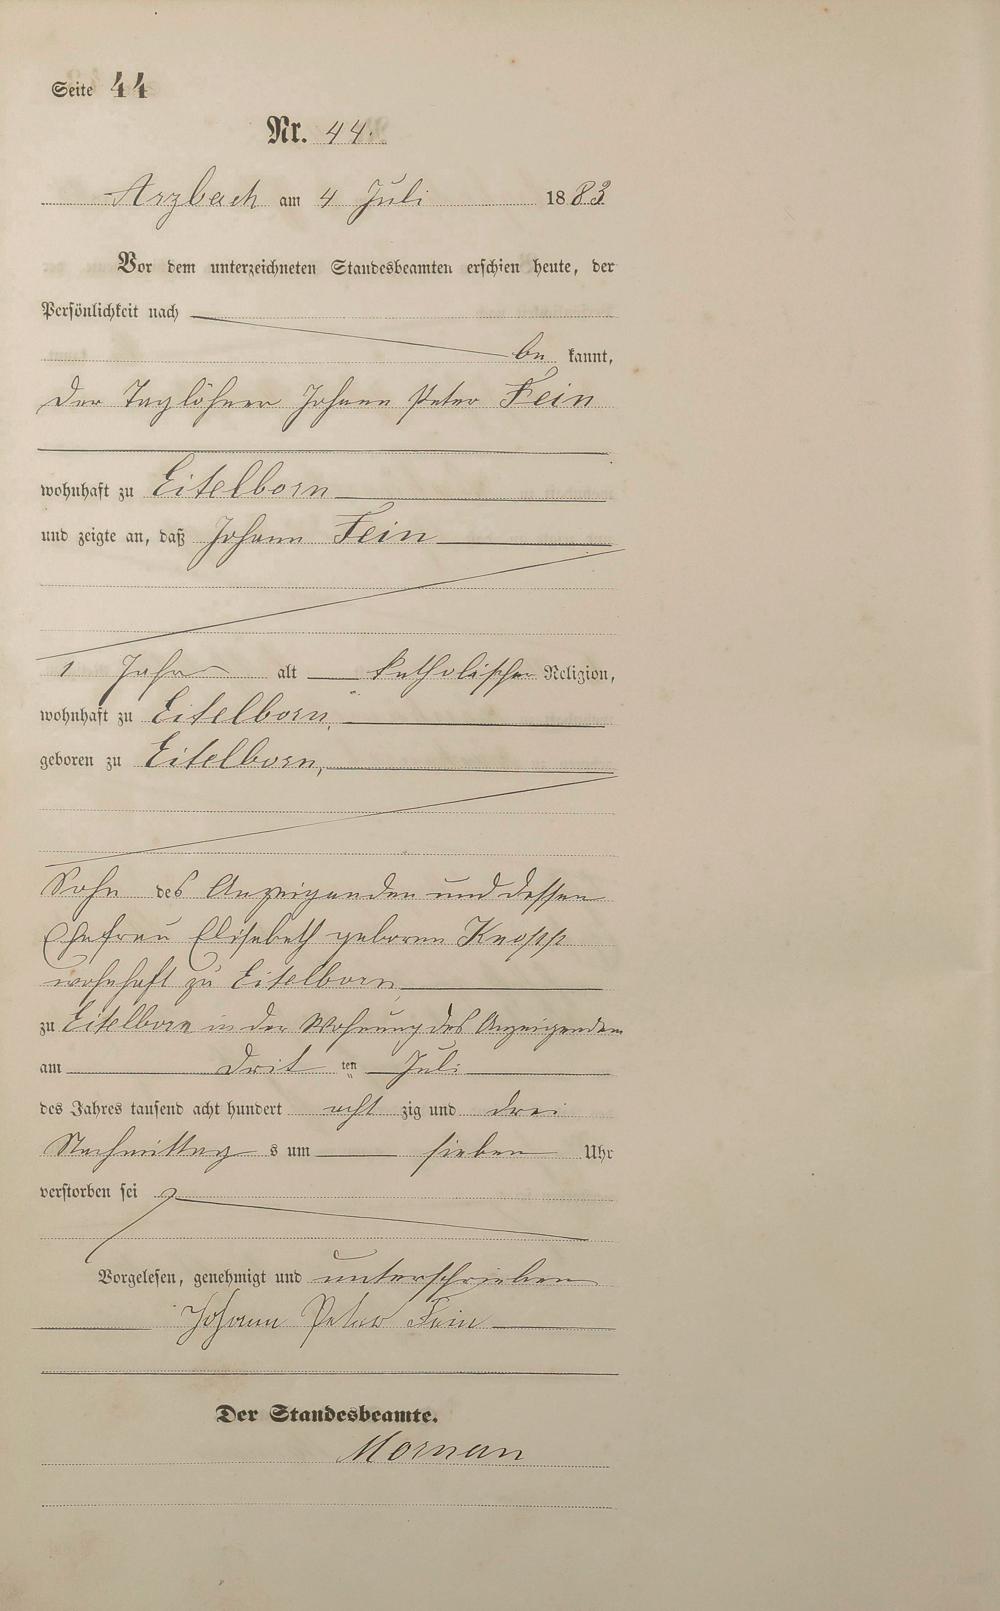 Seite 44
Nr. 44.
Arzbach am 4 Juli 1883
Vor dem unterzeichneten Standesbeamten erschien heute, der
Persönlichkeit nach
be kannt,
der Taglöhner Johann Peter Fein
wohnhaft zu Eitelborn
und zeigte an, daß Johann Fein
1 Jahr alt katholischer Religion,
wohnhaft zu Eitelborn,
geboren zu Eitelborn,
Sohn des Anzeigenden und dessen
Ehefrau Elisabeth geboren Knopp
wohnhaft zu Eitelborn
zu Eitelborn in der Wohnung des Anzeigenden
am drit ten Juli
des Jahres tausend acht hundert acht zig und drei
Nachmittag s um sieben Uhr
verstorben sei
Vorgelesen, genehmigt und unterschrieben
Johann Peter Fein
Der Standesbeamte.
Mornan